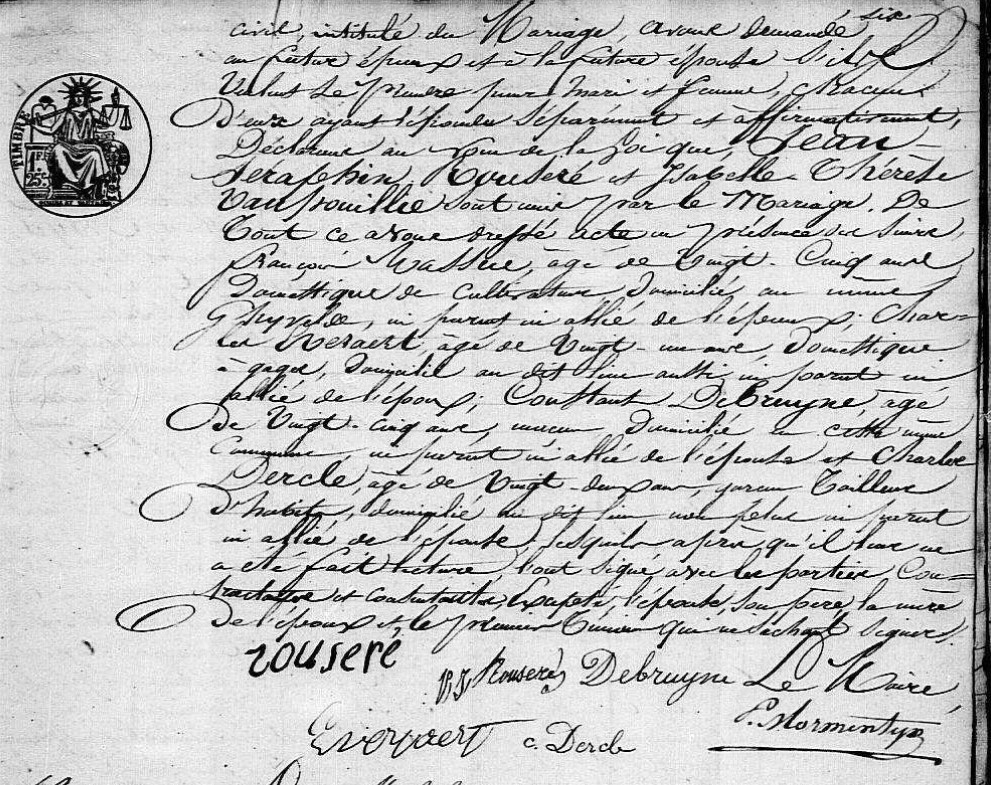 six
civil, intitulé du Mariage, avons demandé
au futur époux et à la future épouse s'ils
veulent se prendre pour mari et femme, chacun
D'eux ayant répondu séparément et affirmativement,
Déclarons au nom de la loi que, Jean-
Seraphin Rouseré et Isabelle Thérèse
Vanhouillie sont unis par le Mariage. De
Tout ce avons dressé acte en présence des sieurs
françois Vassue, âgé de Vingt-Cinq ans
Domestique de cultivateur domicilié au même
Ghyvelde, ni parent ni allié de l'époux; Char=
les Everaert, âgé de Vingt-un ans, Domestique
à gages, domicilié au dit lieu aussi ni parent ni
allié de l'époux; Constant DeBruyne, âgé
De Vingt-cinq ans, domicilié en cette même
Commune, ni parent ni allié de l'épouse et Charles
Dercle, âgé de Vingt-deux ans, garçon Tailleur
D'habits, domicilié au dit lieu non plus ni parent
ni allié de l'épouse, lesquels après qu'il leur en
a été fait lecture, l'ont signé avec les parties Con=
tractantes et consentantes, Excepté, l'épouse, son père, la mère
De l'époux et le premier témoin qui ne sachant signer.
rouseré
Rouseré Debruyne Le Maire,
P. Mormentyn
Everaert c. Dercle
TIMBRE
1 FR
25 C